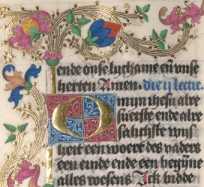 ende onse lychame en unse
herten Amen. die ij lectie
min ihesu alre
suetste ende alre
salichste uns
heit een woert des vaders
een einde ende een beginne
alles wesens Ick inde